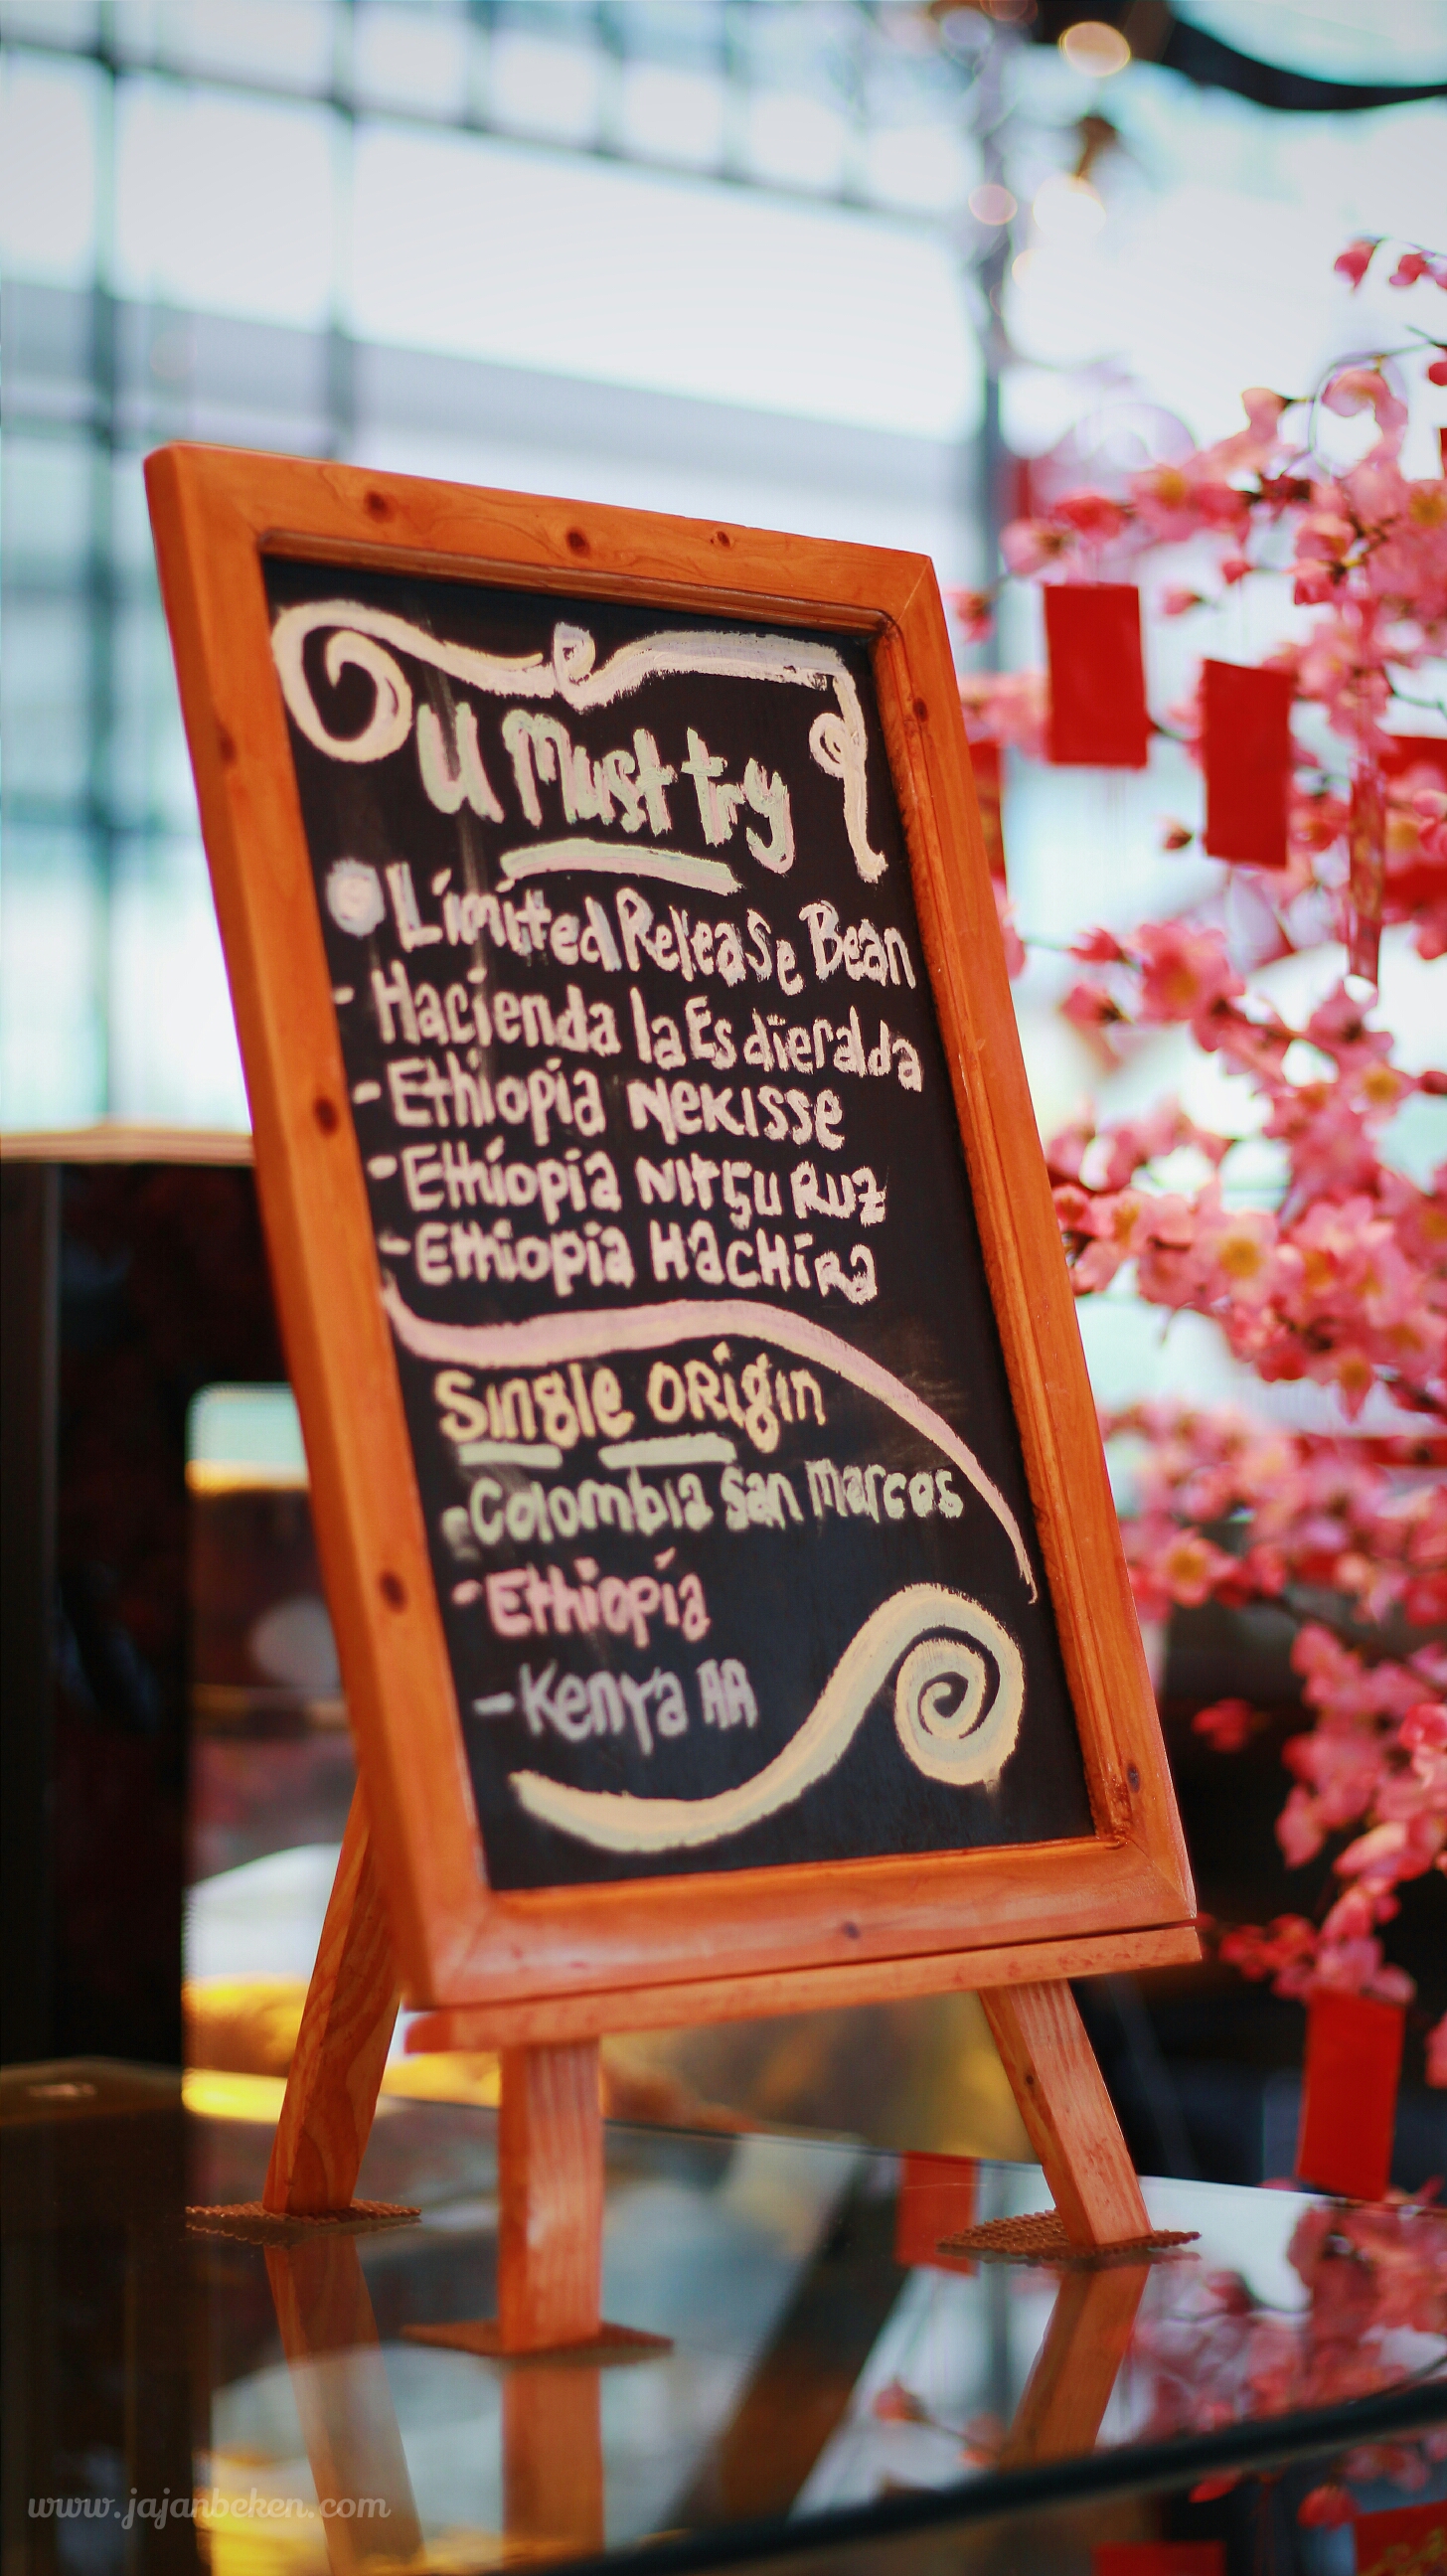 U Must try
Limited Release Bean
- Hacienda la Esdieralda
- Ethiopia Nekisse
- Ethiopia Nitgu Ruz
- Ethiopia Hachira
Single Origin
- Colombia San Marcos
- Ethiopia
- Kenya AA
www.jajanbeken.com